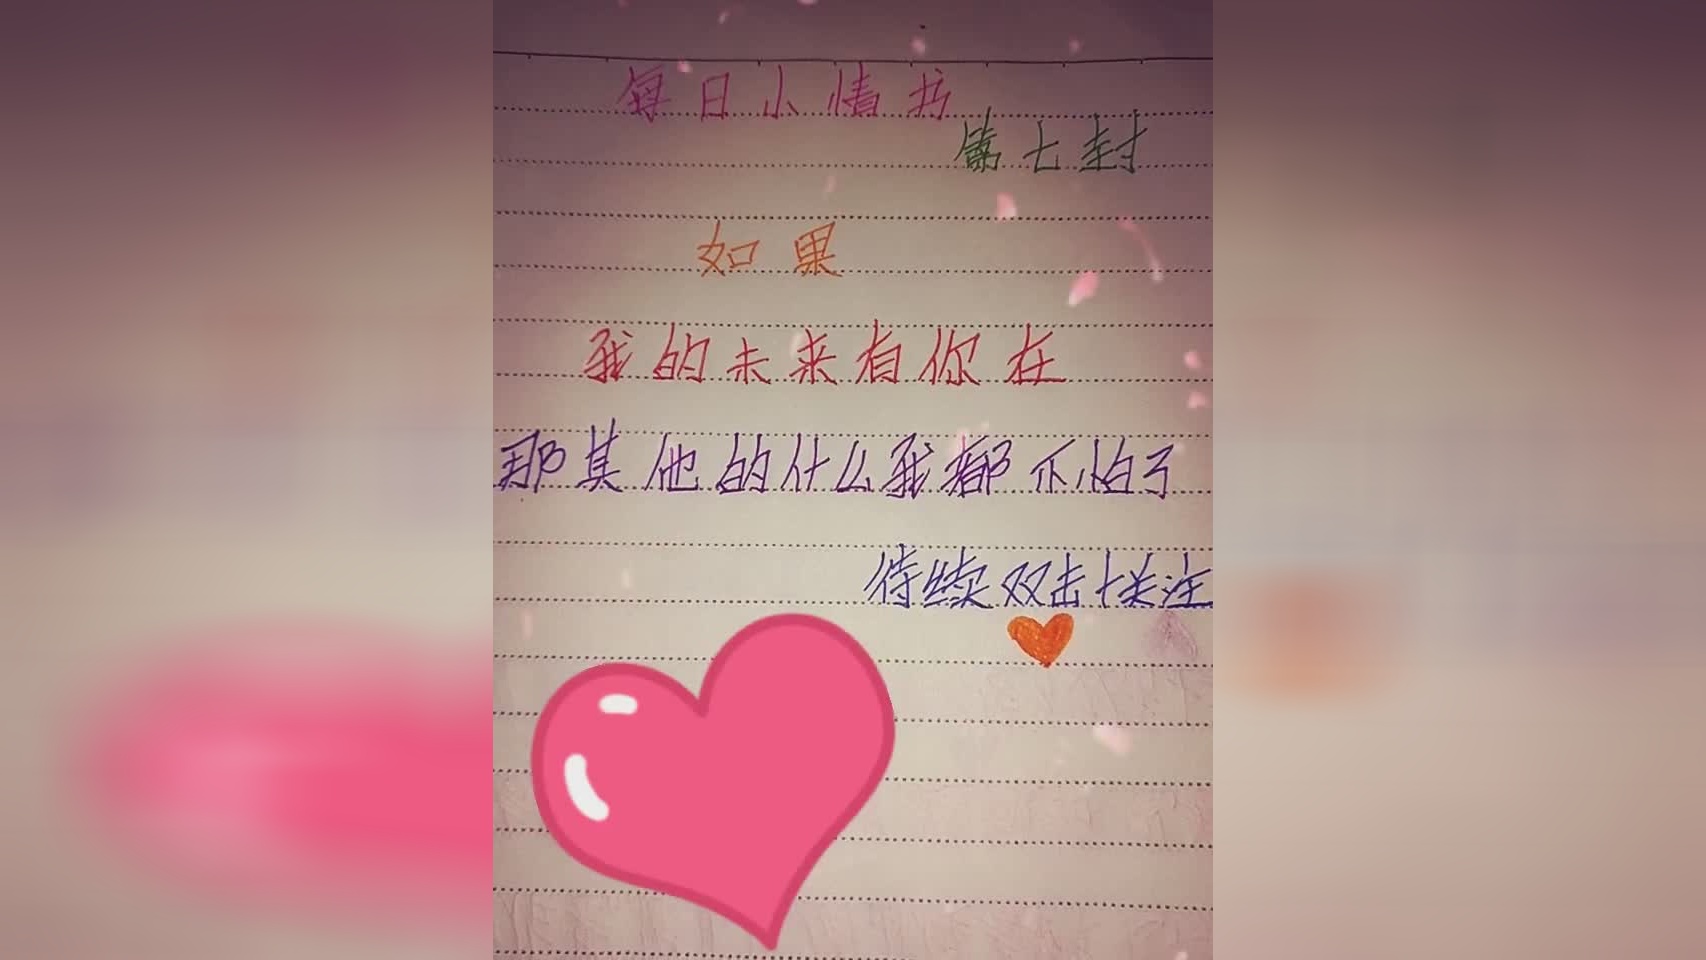 每日小情书
第七封
如果
我的未来有你在
那其他的什么我都不怕了
待续双击+关注